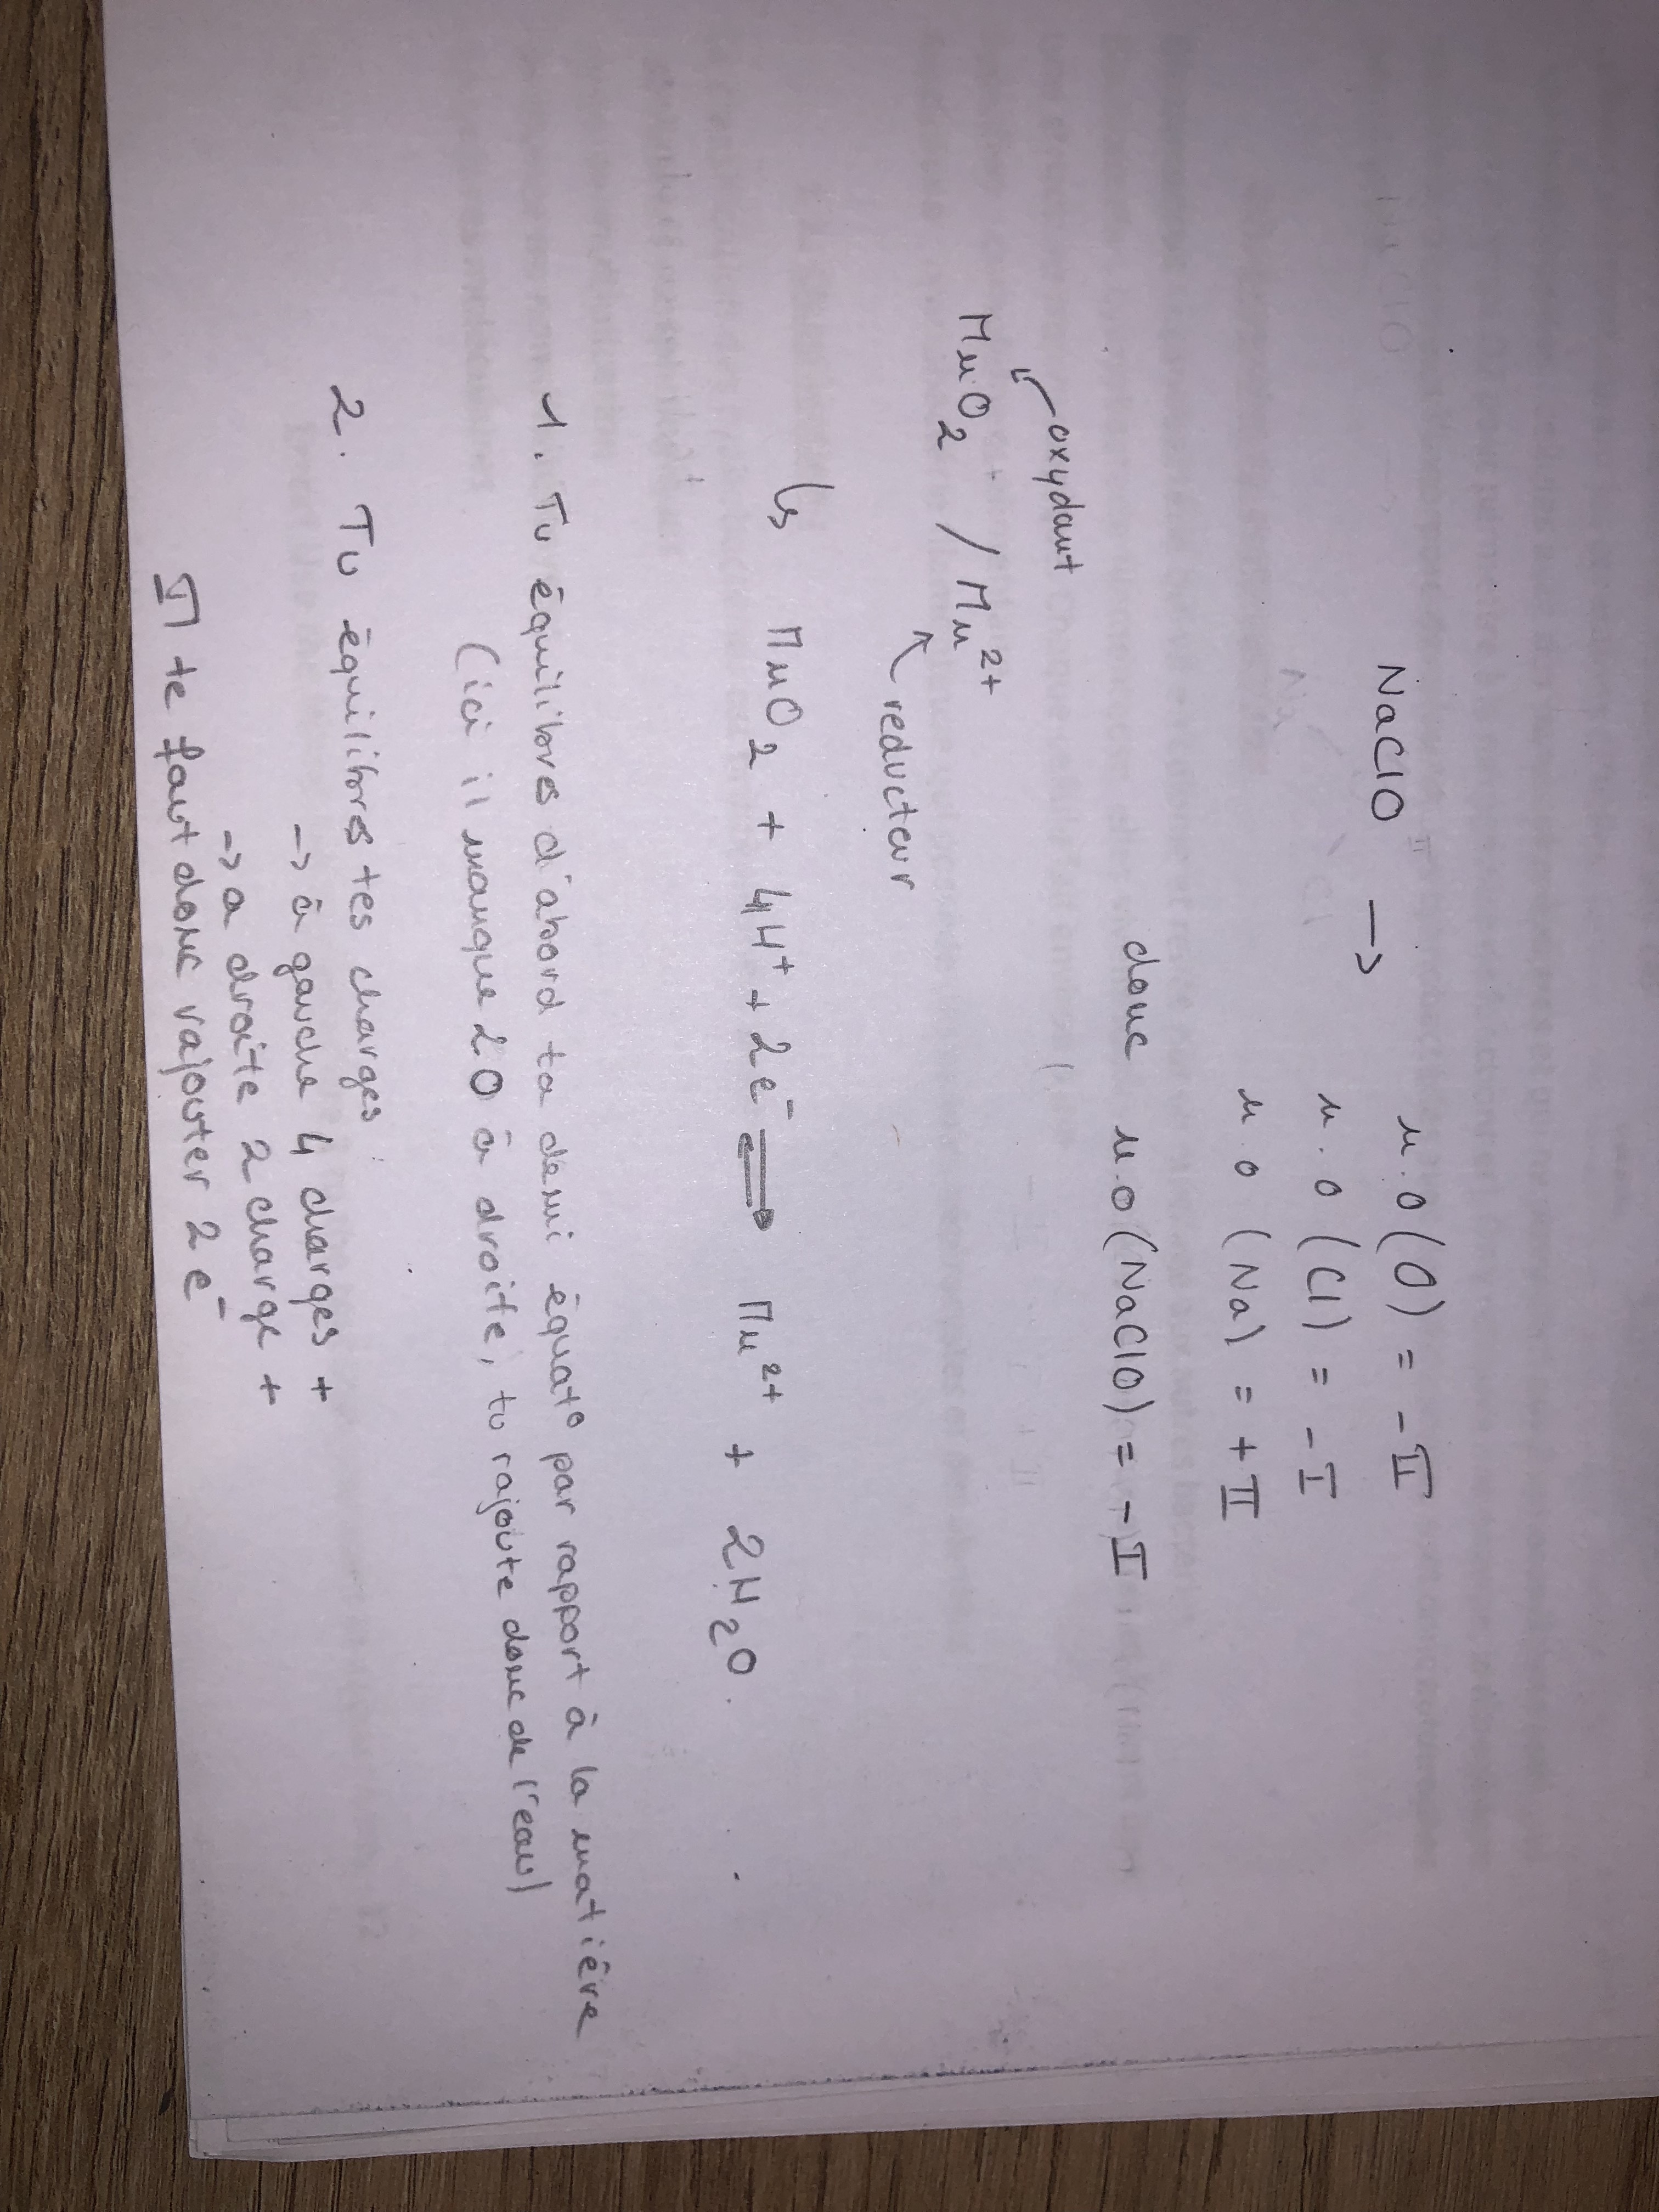 NaClO → n.o(O) = -II
n.o(Cl) = -I
n.o(Na) = +II
donc n.o(NaClO) = -I
oxydant
MnO2 / Mn2+
reducteur
↳ MnO2 + 4H+ + 2e- ⇌ Mn2+ + 2H2O.
1. Tu équilibres d'abord ta demi équat° par rapport à la matière
(ici il manque 2 O à droite, tu rajoute donc de l'eau)
2. Tu équilibres tes charges
-> à gauche 4 charges +
-> a droite 2 charge +
Il te faut donc rajouter 2 e-